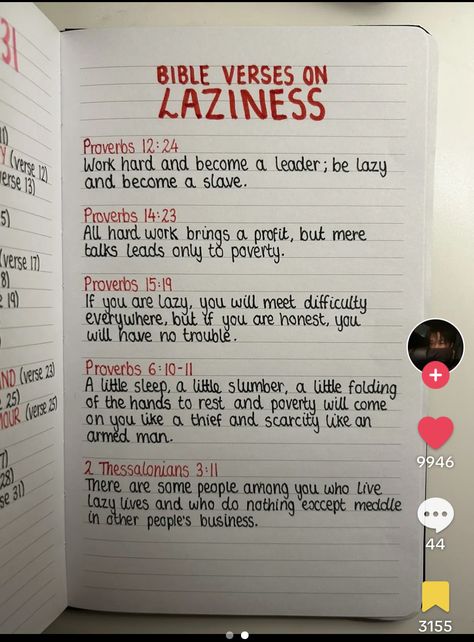 31
11)
Y (verse 12)
erse 13)
5)
(verse 17)
8)
19)
ND (verse 23)
25)
MOUR (verse 25)
7)
28)
se 31)
BIBLE VERSES ON
LAZINESS
Proverbs 12:24
Work hard and become a leader; be lazy
and become a slave.
Proverbs 14:23
All hard work brings a profit, but mere
talks leads only to poverty.
Proverbs 15:19
If you are lazy, you will meet difficulty
everywhere, but if you are honest, you
will have no trouble.
Proverbs 6:10-11
A little sleep, a little slumber, a little folding
of the hands to rest and poverty will come
on you like a thief and scarcity like an
armed man.
2 Thessalonians 3:11
There are some people among you who live
lazy lives and who do nothing except meddle
in other people's business.
9946
44
3155